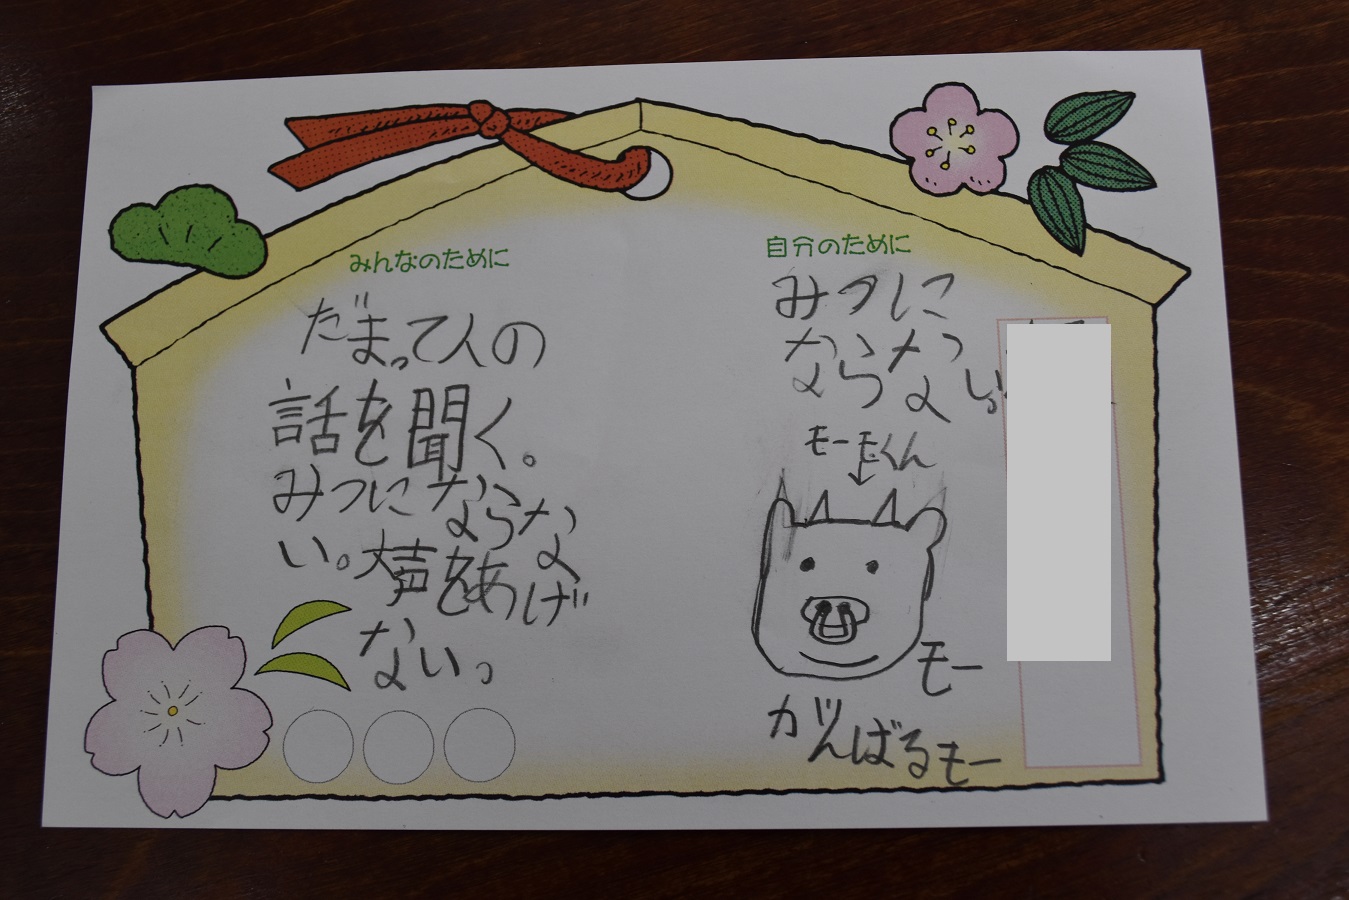 自分のために
みつに
ならな
い。
モーモくん
モー
がんばるモー
みんなのために
だまって人の
話を聞く。
みつにならな
い。大声をあげ
ない。